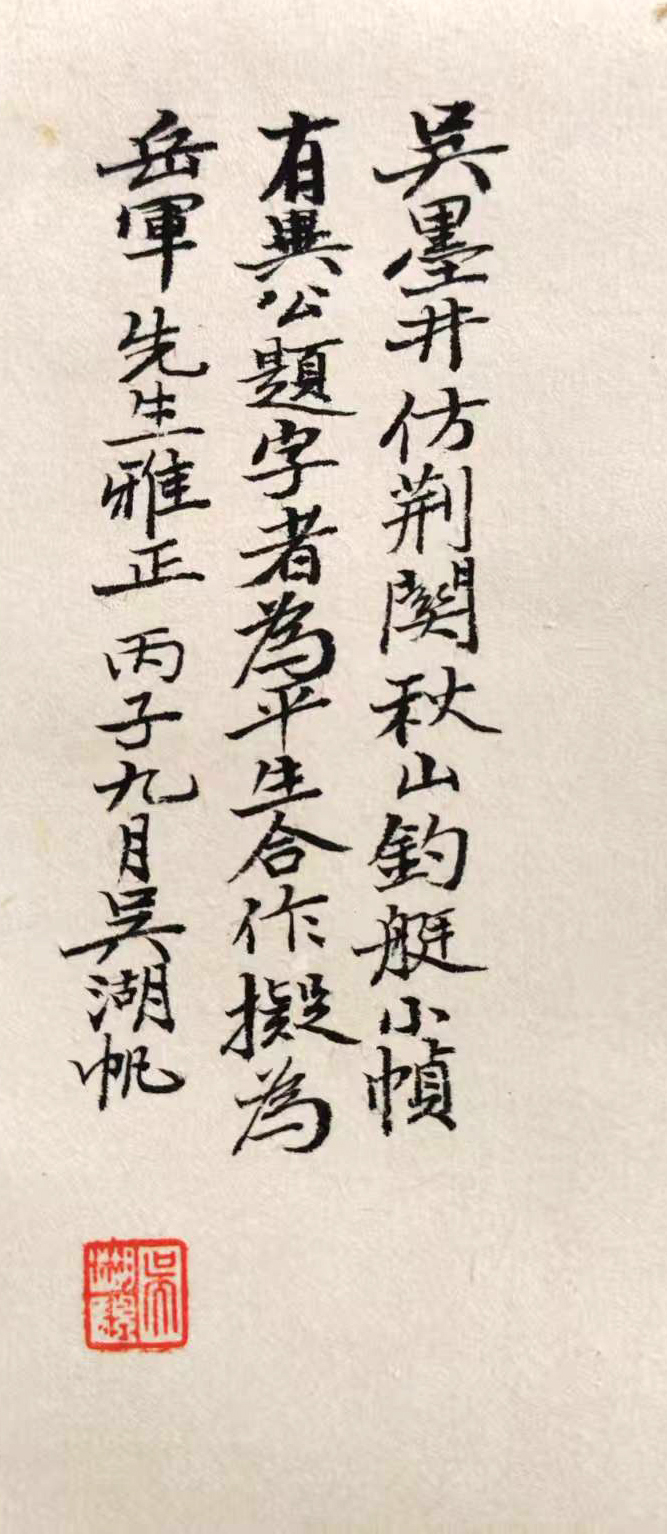 吳墨井仿荆関秋山釣艇小幀
有異公題字者為平生合作擬為
岳軍先生雅正 丙子九月吳湖帆